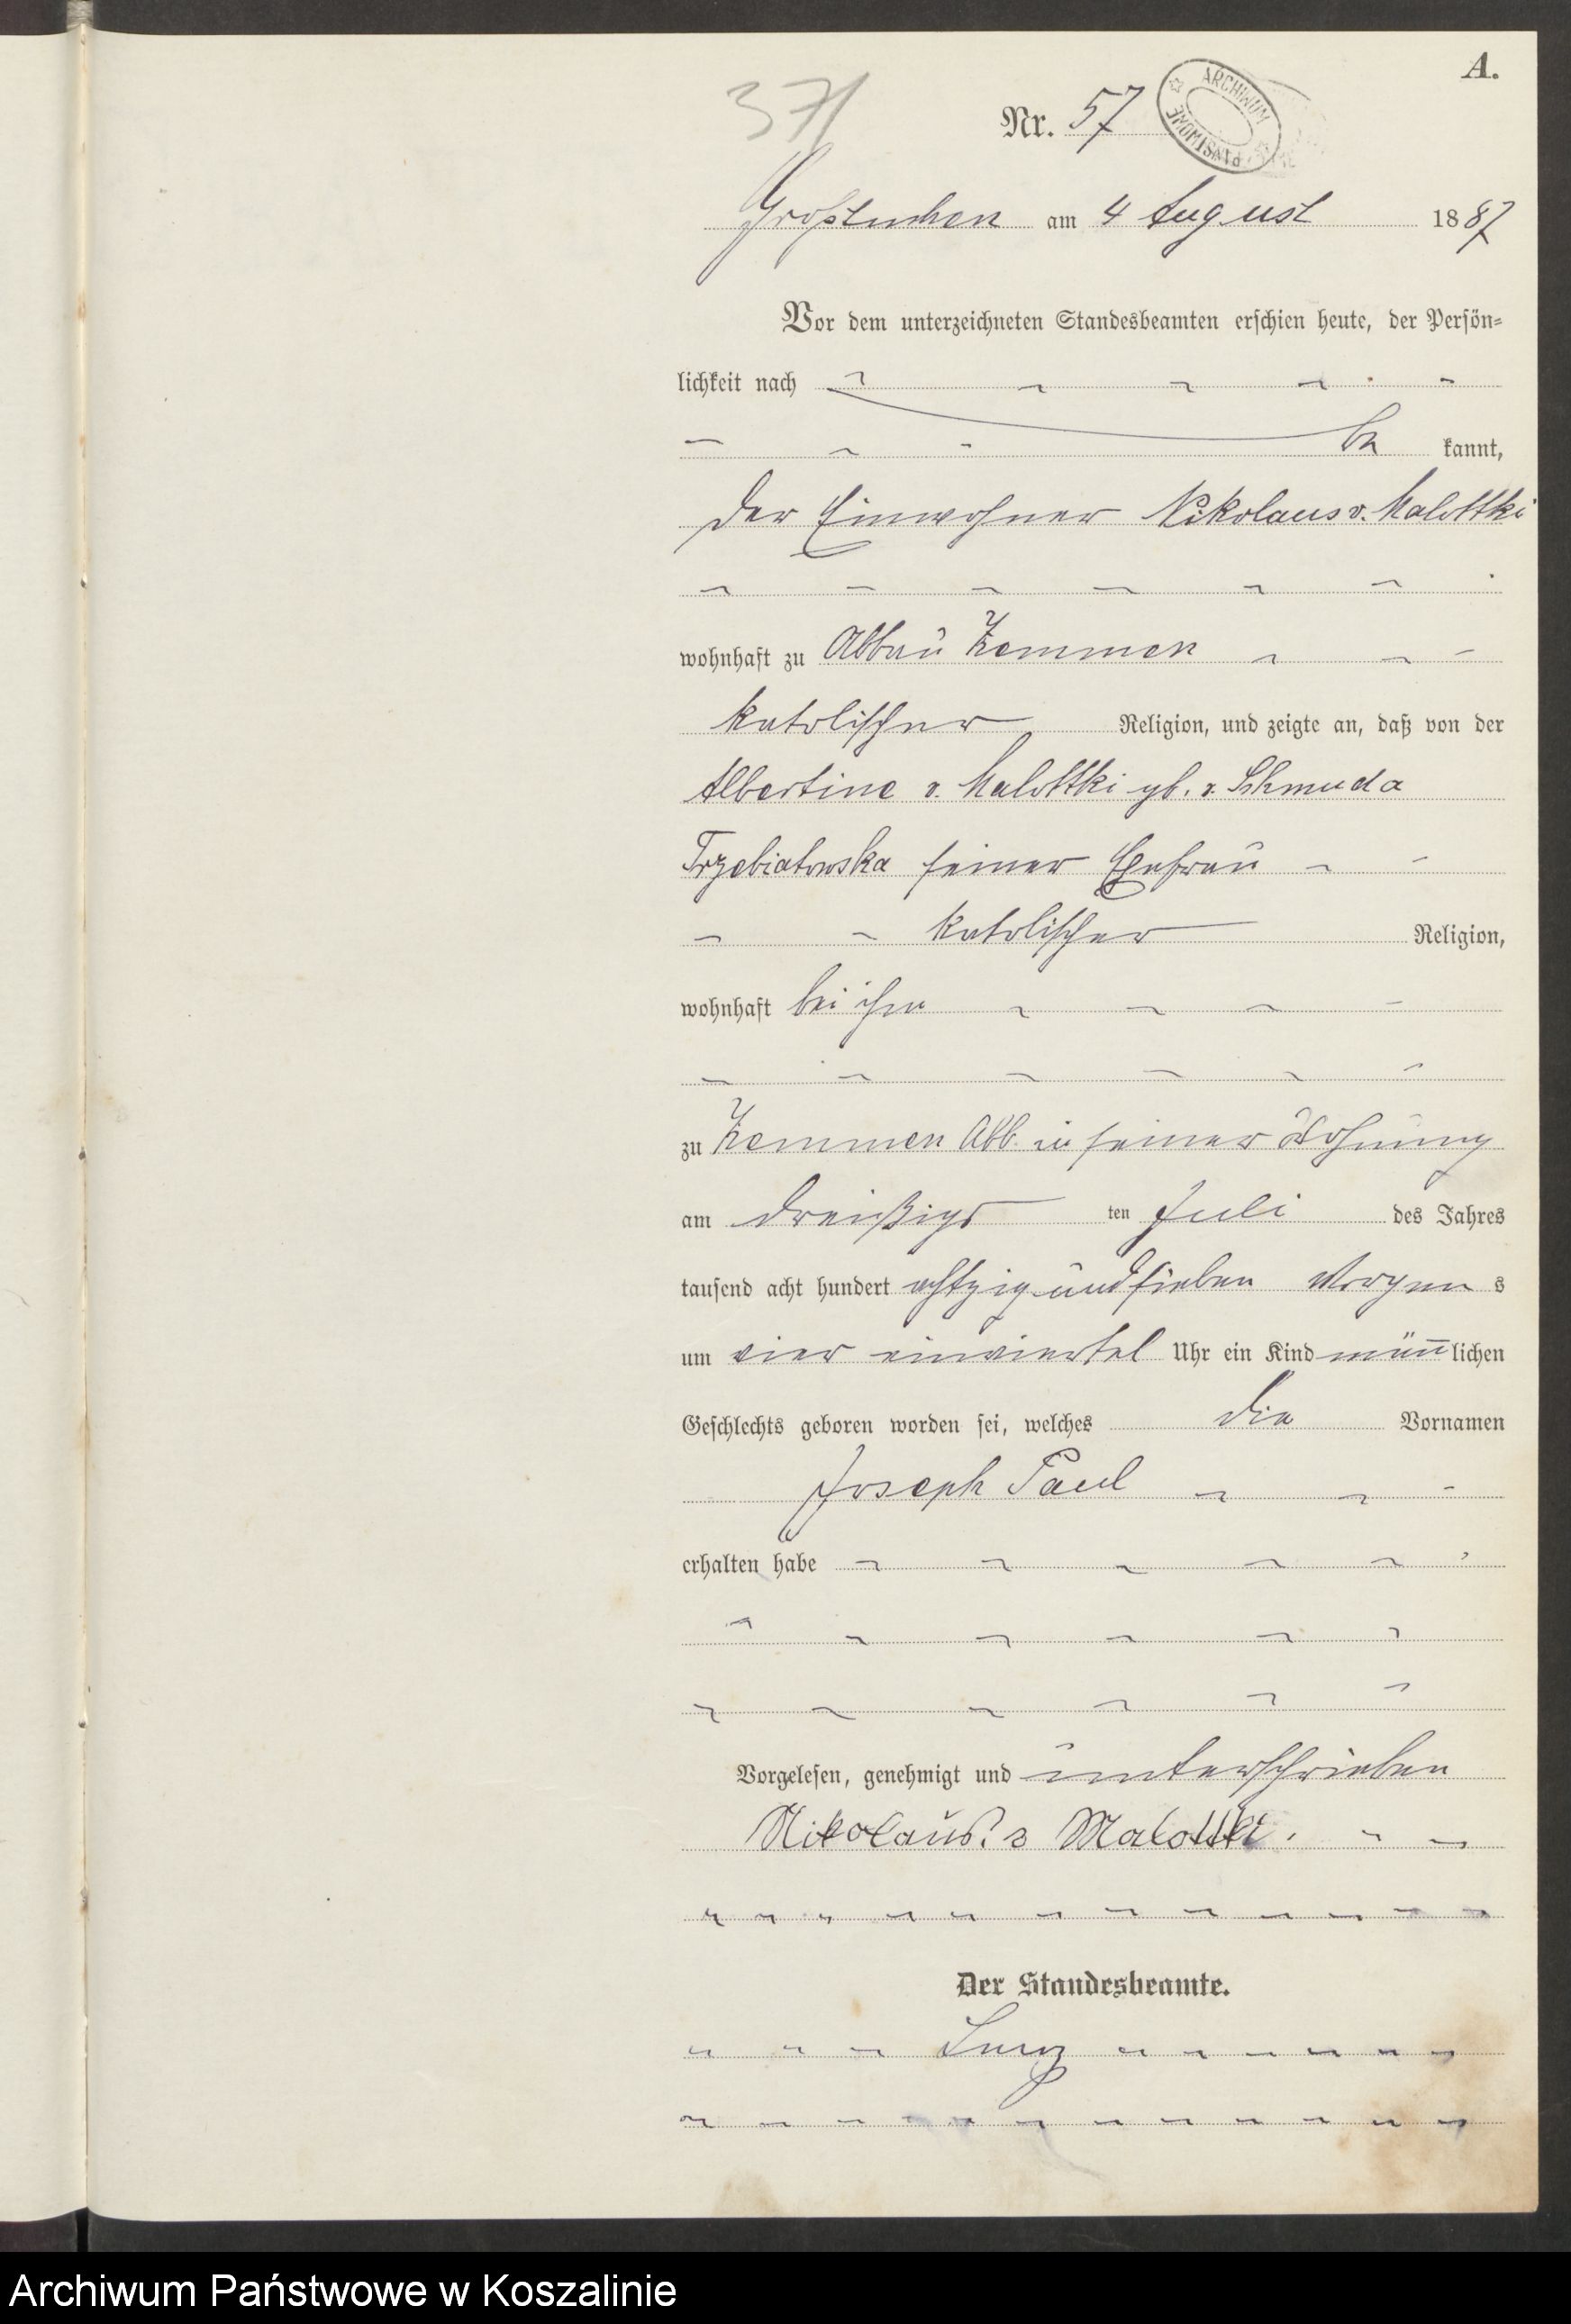 A.
371
Nr. 57
ARCHIWUM PAŃSTWOWE
Großtuchen am 4 August 1887
Vor dem unterzeichneten Standesbeamten erschien heute, der Persön-
lichkeit nach
be kannt,
der Einwohner Nikolaus v. Malottki
wohnhaft zu Abbau Zemmen
katolischer Religion, und zeigte an, daß von der
Albertine v. Malottki gb. v. Schmuda
Trzebiatowska seiner Ehefrau
katolischer Religion,
wohnhaft bei ihm
zu Zemmen Abb. in seiner Wohnung
am dreißigs ten Juli des Jahres
tausend acht hundert achtzig und sieben Morgen s
um vier einviertel Uhr ein Kind männlichen
Geschlechts geboren worden sei, welches die Vornamen
Joseph Paul
erhalten habe
Vorgelesen, genehmigt und unterschrieben
Nikolaus. v Malottki.
Der Standesbeamte.
Archiwum Państwowe w Koszalinie